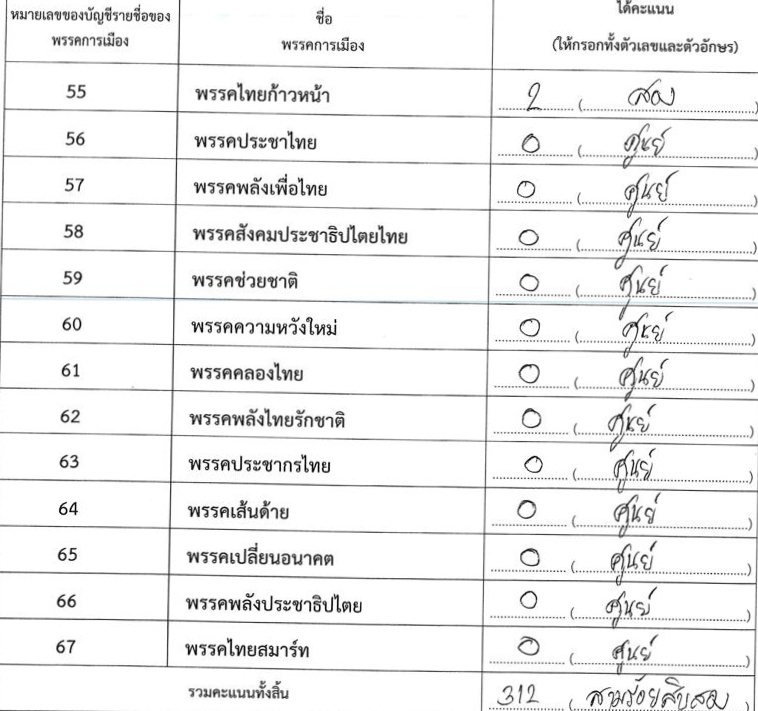 หมายเลขของบัญชีรายชื่อของ พรรคการเมือง ชื่อ พรรคการเมือง ได้คะแนน (ให้กรอกทั้งตัวเลขและตัวอักษร)
55 พรรคไทยก้าวหน้า 2 (สอง)
56 พรรคประชาไทย 0 (ศูนย์)
57 พรรคพลังเพื่อไทย 0 (ศูนย์)
58 พรรคสังคมประชาธิปไตยไทย 0 (ศูนย์)
59 พรรคช่วยชาติ 0 (ศูนย์)
60 พรรคความหวังใหม่ 0 (ศูนย์)
61 พรรคคลองไทย 0 (ศูนย์)
62 พรรคพลังไทยรักชาติ 0 (ศูนย์)
63 พรรคประชากรไทย 0 (ศูนย์)
64 พรรคเส้นด้าย 0 (ศูนย์)
65 พรรคเปลี่ยนอนาคต 0 (ศูนย์)
66 พรรคพลังประชาธิปไตย 0 (ศูนย์)
67 พรรคไทยสมาร์ท 0 (ศูนย์)
รวมคะแนนทั้งสิ้น 312 (สามร้อยสิบสอง)